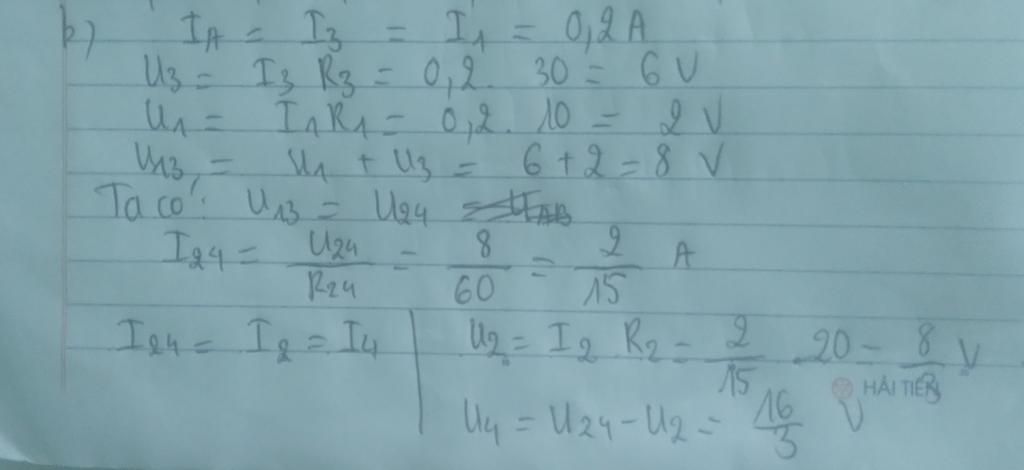 b) I_A = I_3 = I_1 = 0,2A
U_3 = I_3 R_3 = 0,2. 30 = 6 V
U_1 = I_1 R_1 = 0,2. 10 = 2 V
U_13 = U_1 + U_3 = 6 + 2 = 8 V
Ta có: U_13 = U_24
I_24 = U_24/R_24 = 8/60 = 2/15 A
I_24 = I_2 = I_4
U_2 = I_2 R_2 = 2/15 . 20 = 8/3 V
HẢI TIẾN
U_4 = U_24 - U_2 = 16/3 V